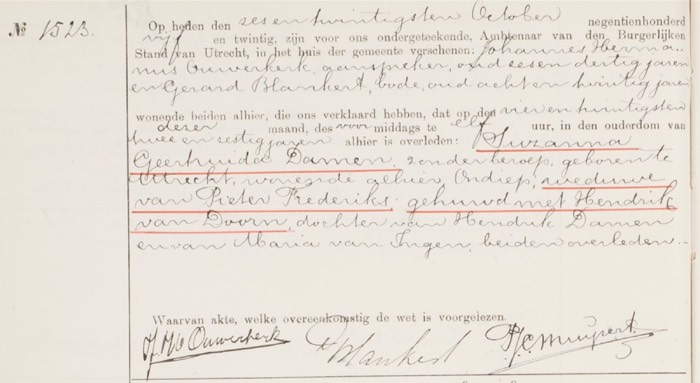 № 1523.
Op heden den sesentwintigsten October negentienhonderd
vijf en twintig, zijn voor ons ondergeteekende, Ambtenaar van den Burgerlijken
Stand van Utrecht, in het huis der gemeente verschenen: Johannes Herma=
nus Ouwerkerk, aanspreker, oud sesendertig jaren
en Gerard Blankert, bode, oud achtentwintig jaren
wonende beiden alhier, die ons verklaard hebben, dat op den vierentwintigsten
dezer maand, des voor middags te elf uur, in den ouderdom van
twee en sestig jaren alhier is overleden: Suzanna
Geertruida Damen, zonder beroep, geboren te
Utrecht, wonende alhier, Ondiep, weduwe
van Pieter Frederiks, gehuwd met Hendrik
van Doorn, dochter van Hendrik Damen
en van Maria van Ingen, beiden overleden.
Waarvan akte, welke overeenkomstig de wet is voorgelezen.
Ouwerkerk Blankert